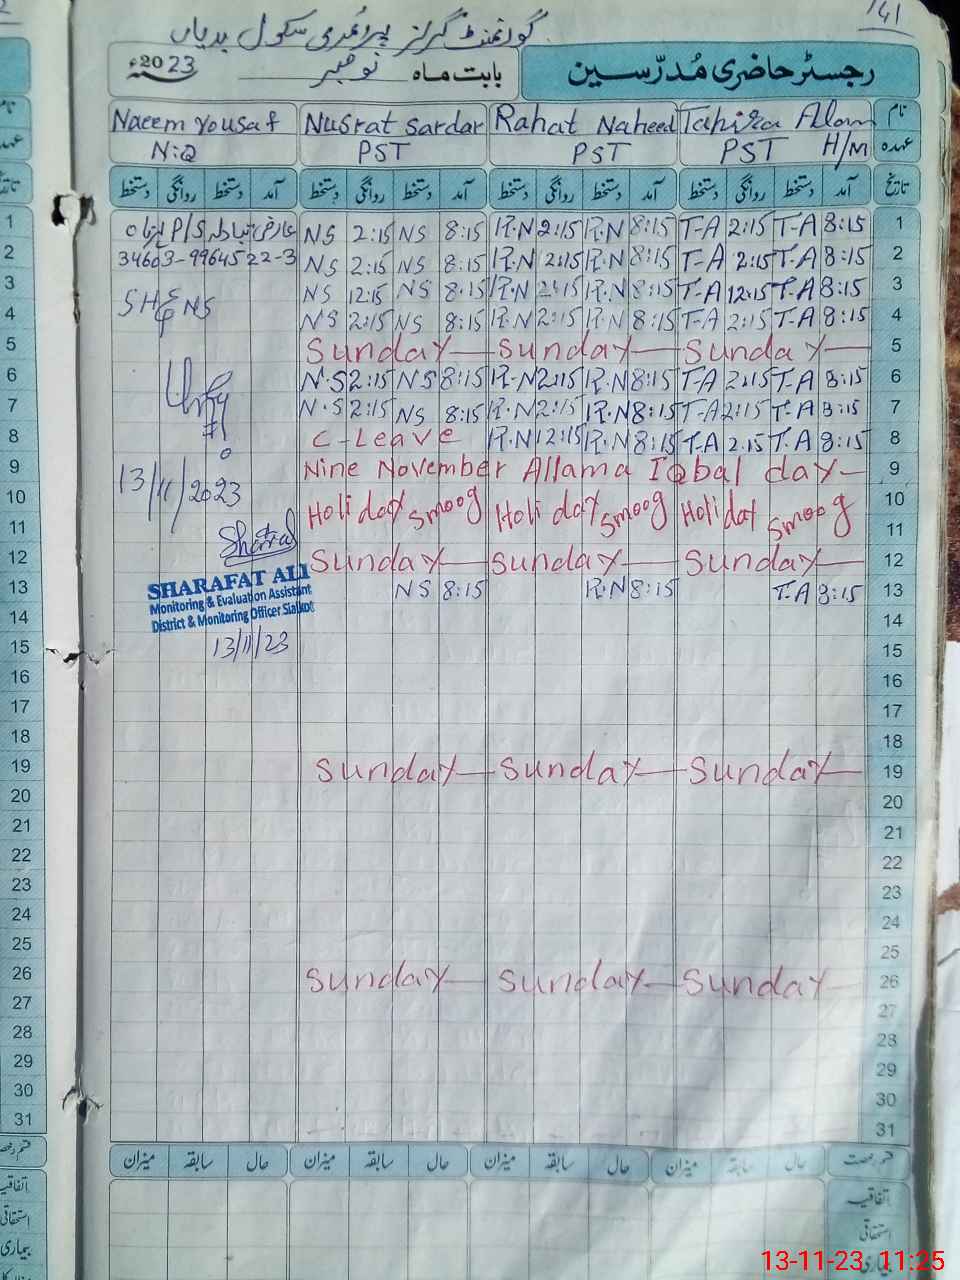 141
گورنمنٹ گرلز پرائمری سکول بدیاں
رجسٹر حاضری مُدرّسین بابت ماہ نومبر 2023ء
نام Tahira Allam Rahat Naheed Nusrat Sardar Naeem Yousaf
عہدہ PST H/M PST PST N:Q
تاریخ آمد دستخط روانگی دستخط آمد دستخط روانگی دستخط آمد دستخط روانگی دستخط آمد دستخط روانگی دستخط
P/S NS 2:15 NS 8:15 R.N 2:15 R.N 8:15 T-A 2:15 T-A 8:15 1
34603-9964522-3 NS 2:15 NS 8:15 R.N 2:15 R.N 8:15 T-A 2:15 T-A 8:15 2
NS 12:15 NS 8:15 R.N 2:15 R.N 8:15 T-A 12:15 T-A 8:15 3
NS 2:15 NS 8:15 R.N 2:15 R.N 8:15 T-A 2:15 T-A 8:15 4
Sunday Sunday Sunday 5
N.S 2:15 NS 8:15 R.N 2:15 R.N 8:15 T-A 2:15 T-A 8:15 6
N.S 2:15 NS 8:15 R.N 2:15 R.N 8:15 T-A 2:15 T-A 8:15 7
C-Leave R.N 12:15 R.N 8:15 T-A 2.15 T-A 8:15 8
Nine November Allama Iqbal day 9
13/11/2023 10
Holiday Smoog Holi day Smoog Holidat Smoog 11
Sunday Sunday Sunday 12
SHARAFAT ALI
NS 8:15 R.N 8:15 T.A 8:15 13
Monitoring & Evaluation Assistant
District & Monitoring Officer Sialkot
14
13/11/23 15
16
17
18
Sunday Sunday Sunday 19
20
21
22
23
24
25
Sunday Sunday Sunday 26
27
28
29
30
31
قسم رخصت حال سابقہ میزان حال سابقہ میزان حال سابقہ میزان حال سابقہ میزان
اتفاقیہ
استحقاقی
بیماری
13-11-23 11:25